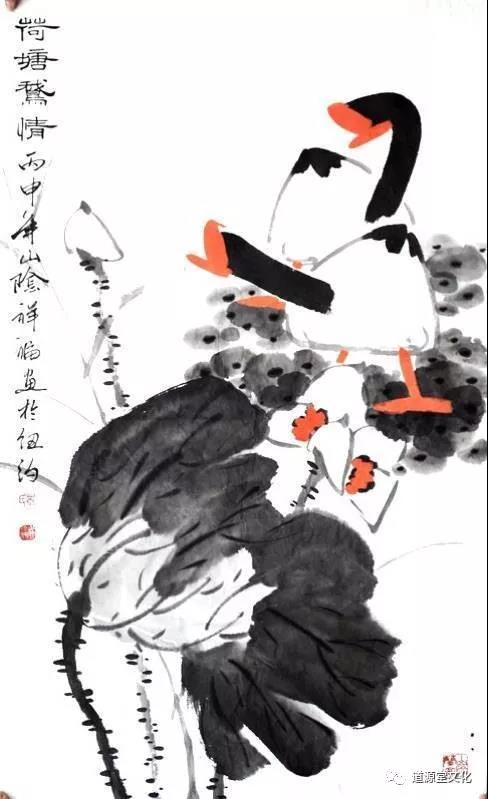 荷塘鵞情丙申年山陰祥福画於纽约
道源堂文化